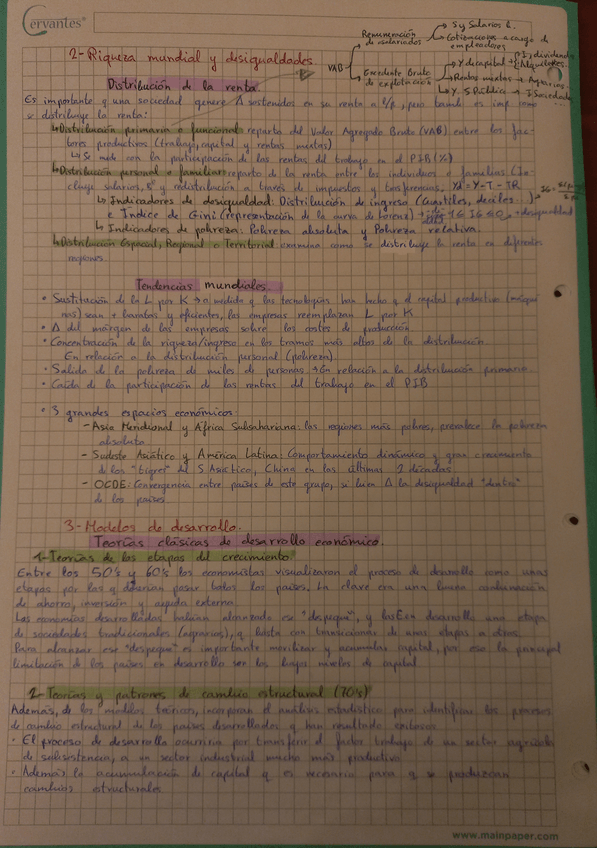 Cervantes
2-Riqueza mundial y desigualdades.
VAB
Remuneración de asalariados
S y Salarios b.
Cotizaciones a cargo de empleadores
Excedente Bruto de explotación
Y de capital
I. dividendos
Alquileres.
Rentas mixtas → Agrarias.
Y S Pública → I Sociedades
Distribución de la renta.
Es importante q una sociedad genere Δ sostenidos en su renta a l/p, pero también es imp como
se distribuye la renta:
↳Distribución primaria o funcional reparto del Valor Agregado Bruto (VAB) entre los fac-
tores productivos (trabajo, capital y rentas mixtas)
↳Se mide con la participación de las rentas del trabajo en el PIB (%)
↳Distribución personal o familiar reparto de la renta entre los individuos o familias. (In-
cluye salarios, y redistribución a través de impuestos y trasferencias. Yd = Y-T-TR
↳ Indicadores de desigualdad: Distribución de ingreso (cuartiles, deciles...)
e Índice de Gini (representación de la curva de Lorenz) 1 ≤ IG ≤ 0 + desigualdad
↳ Indicadores de pobreza: Pobreza absoluta y Pobreza relativa.
↳Distribución Espacial, Regional o Territorial examina como se distribuye la renta en diferentes
regiones
Tendencias mundiales.
• Sustitución de la L por K → a medida q las tecnologías han hecho q el capital productivo (máqui-
nas) sean + baratas y eficientes, las empresas reemplazan L por K
• Δ del márgen de las empresas sobre los costes de producción
• Concentración de la riqueza/ingreso en los tramos más altos de la distribución.
En relación a la distribución personal (pobreza).
• Salida de la pobreza de miles de personas → En relación a la distribución primaria.
• Caída de la participación de las rentas del trabajo en el PIB
• 3 grandes espacios económicos:
- Asia Meridional y África Subsahariana: las regiones más pobres, prevalece la pobreza
absoluta
- Sudeste Asiático y América Latina: Comportamiento dinámico y gran crecimiento
de los "tigres" del S.Asiático, China en las últimas 2 décadas
- OCDE: Convergencia entre países de este grupo, si bien Δ la desigualdad "dentro"
de los países
3- Modelos de desarrollo.
Teorías clásicas de desarrollo económico.
1-Teorías de las etapas del crecimiento.
Entre los 50's y 60's los economistas visualizaron el proceso de desarollo como unas
etapas por las q deberían pasar todos los países. La clave era una buena combinación
de ahorro, inversión y ayuda externa.
Las economías desarrolladas habían alcanzado ese "despegue", y las E en desarollo una etapa
de sociedades tradicionales (agrarias), q basta con transicionar de unas etapas a otras.
Para alcanzar ese "despegue" es importante movilizar y acumular capital, por eso la principal
limitación de los países en desarrollo son los bajos niveles de capital
2-Teorías y patrones de cambio estructural (70's)
Además, de los modelos teóricos, incorporan el análisis estadístico para identificar los procesos
de cambio estructural de los países desarrollados q han resultado exitosos
• El proceso de desarrollo ocurriría por transferir el factor trabajo de un sector agrícola
de subsistencia, a un sector industrial mucho más productivo
• Además la acumulación de capital q es necesario para q se produzcan
cambios estructurales
www.mainpaper.com